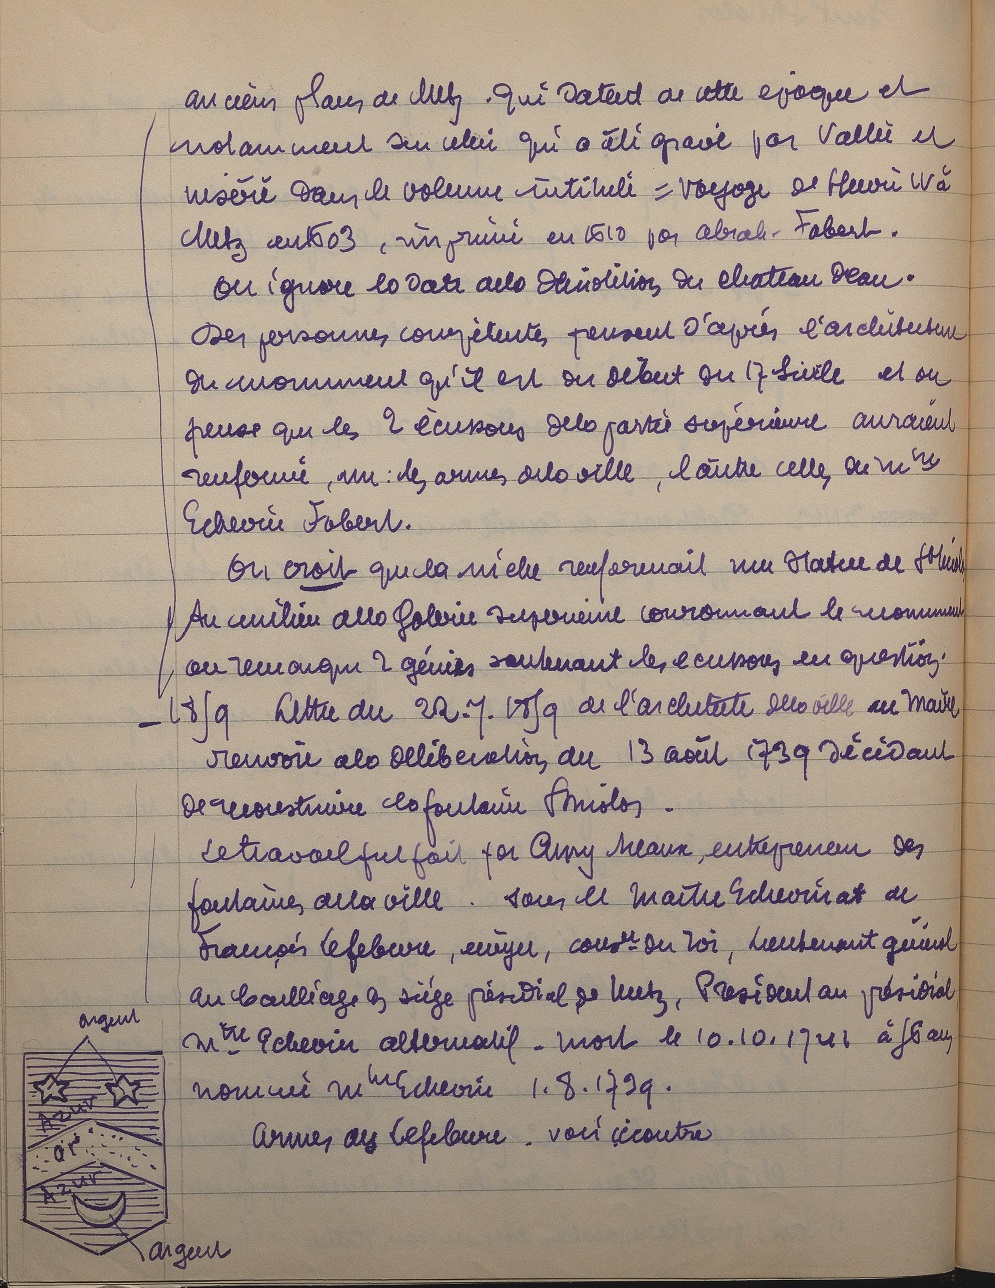 anciens plans de Metz. qui datent de cette epoque et
notamment sur celui qui a été gravé par Vallée et
inséré dans le volume intitulé = Voyage de Henri IV à
Metz en 1603, imprimé en 1610 par Abrah. Fabert.
On ignore la date de la démolition du chateau d'eau.
Des personnes compétentes pensent d'après l'architecture
du monument qu'il est du début du 17 siècle et on
pense que les 2 écussons de la partie supérieure auraient
renfermé, un: les armes de la ville, l'autre celles du mtre
Echevin Fabert.
On croit que la niche renfermait une statue de St Nicolas
Au milieu de la Galerie superieure couronnant le monument
on remarque 2 génies soutenant les ecussons en question.
- 1859 Lettre du 22.7.1859 de l'architecte de la ville au Maire
renvoie a la délibération du 13 août 1739 décidant
de reconstruire la fontaine St Nicolas.
Le travail fut fait par Meaux, entrepreneur des
fontaines de la ville. sous le Maitre Echevinat de
François Lefebvre, ecuyer, conser du roi, Lieutenant général
au bailliage & siége présidial de Metz, President au présidial
mtre Echevin alternatif - mort le 10.10. à 56 ans
nommé mtre Echevin 1.8.1739.
Armes des Lefebvre. voir ci contre
argent
Azur
or
Azur
argent